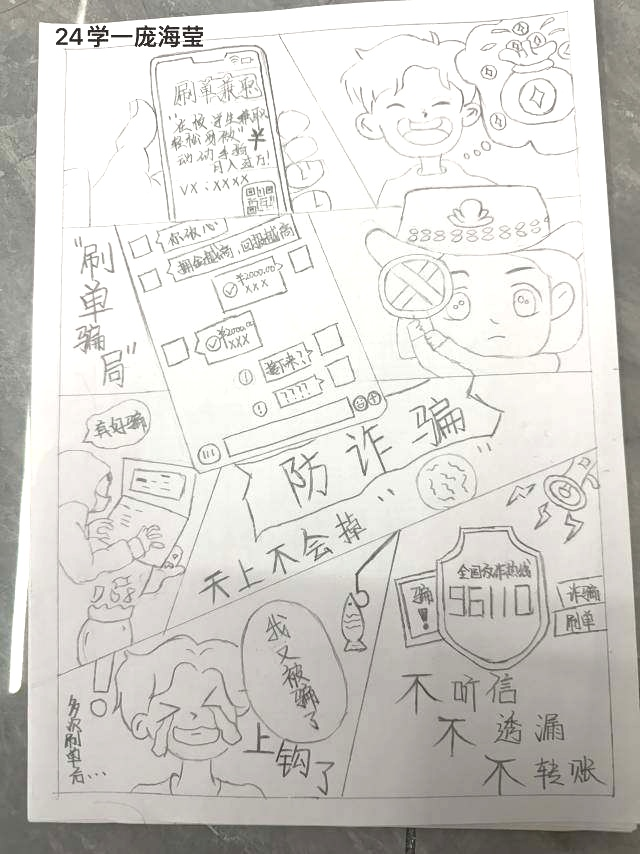 24学一庞海莹
刷单兼职
"在校学生兼职
轻松易做"
动动手指
月入过万!
VX:XXXX
¥
"刷单骗局"
你放心
佣金越高,回报越高
¥2000.00
XXX
¥2000.00
XXX
接下来?
????
真好骗
防诈骗
天上不会掉" "
全国反诈热线
96110
骗!
诈骗
刷单
多次刷单后...
我又被骗了
上钩了
不听信
不透漏
不转账